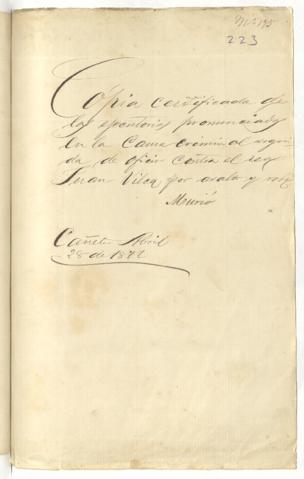 223
Copia certificada de
las ejecutorias pronunciadas
en la Causa Criminal segui
da de oficio contra el reo
Juan Vilca por asalto y robo
Murió
Cañete Abril
28 de 1872